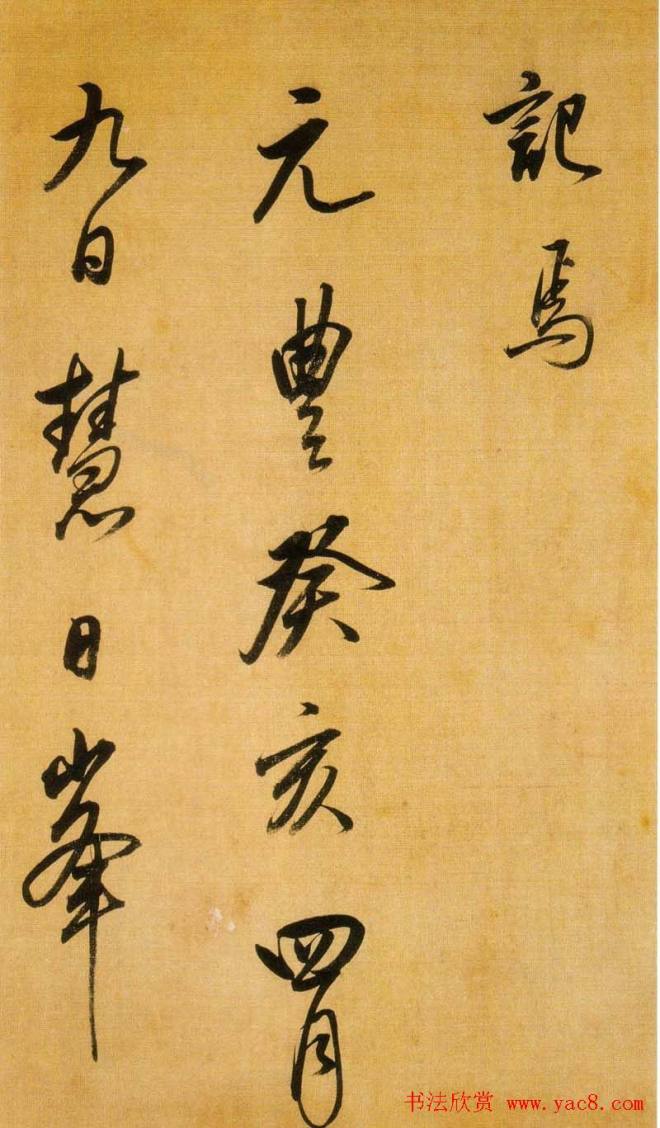 記焉
元豐癸亥四月
九日慧日峯
书法欣赏 www.yac8.com